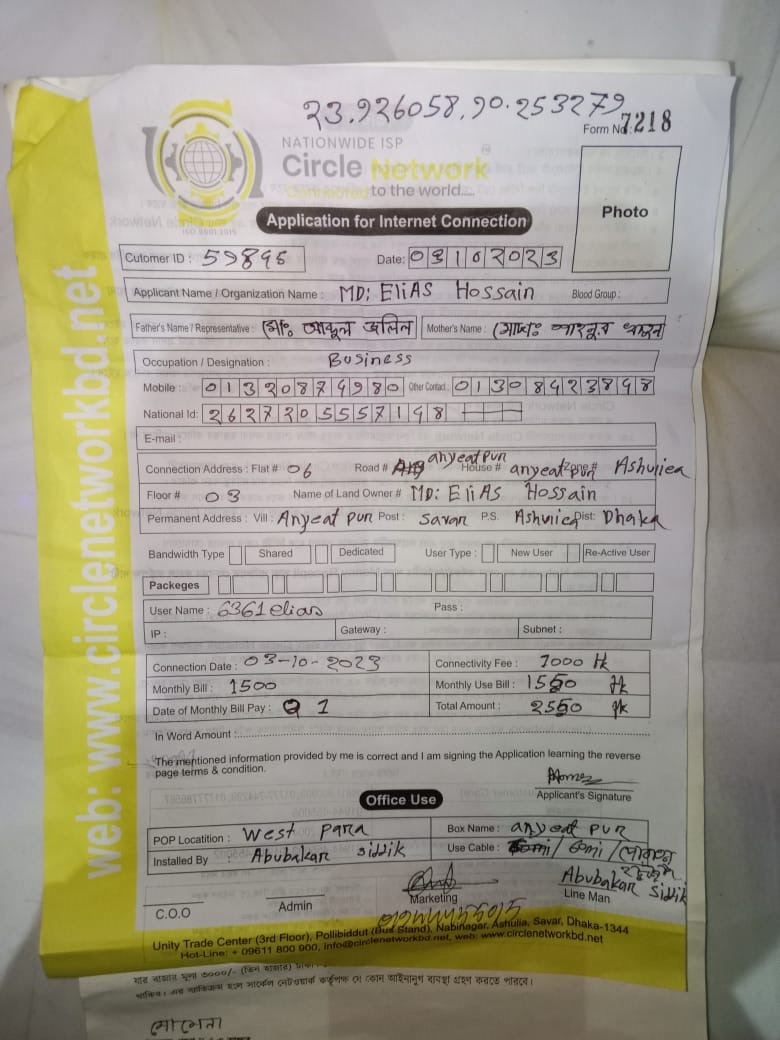 23.926058, 90.253279
Form No: 7218
NATIONWIDE ISP
Circle Network
Connected to the world...
ISO 9001:2015
Photo
Application for Internet Connection
Cutomer ID : 59895 Date: 03102023
Applicant Name / Organization Name : MD: EliAS Hossain Blood Group :
Father's Name / Representative : মোঃ আব্দুল জলিল Mother's Name : মোছাঃ
Occupation / Designation : Business
Mobile : 01320874980 Other Contact : 01308423848
National Id: 2627205557148
E-mail :
Connection Address : Flat # 06 Road # anyeat pun House # anyeat pun Zone # Ashuliea
Floor # 03 Name of Land Owner # MD: EliAS Hossain
Permanent Address : Vill : Anyeat pun Post : savar P.S. Ashulica Dist: Dhaka
Bandwidth Type Shared Dedicated User Type : New User Re-Active User
Packeges
User Name : 6361elias Pass :
IP : Gateway : Subnet :
Connection Date : 03-10-2023 Connectivity Fee : 1000 tk
Monthly Bill : 1500 Monthly Use Bill : 1550 tk
Date of Monthly Bill Pay : 1 Total Amount : 2550 tk
In Word Amount :
The mentioned information provided by me is correct and I am signing the Application learning the reverse
page terms & condition.
Applicant's Signature
Office Use
POP Locatition : West Para Box Name : anyeat pur
Installed By : Abubakar siddik Use Cable : 60mi /
Abubakar siddik
C.O.O Admin Marketing Line Man
Unity Trade Center (3rd Floor), Pollibiddut (Bus Stand), Nabinagar, Ashulia, Savar, Dhaka-1344
Hot-Line: + 09611 800 900, info@circlenetworkbd.net, web: www.circlenetworkbd.net
web: www.circlenetworkbd.net
যার বাজার মূল্য ৩০০০/- (তিন হাজার) টাকা
থাকিব। এর ব্যতিক্রম হলে সার্কেল নেটওয়ার্ক কর্তৃপক্ষ যে কোন আইনানুগ ব্যবস্থা গ্রহণ করতে পারবে।